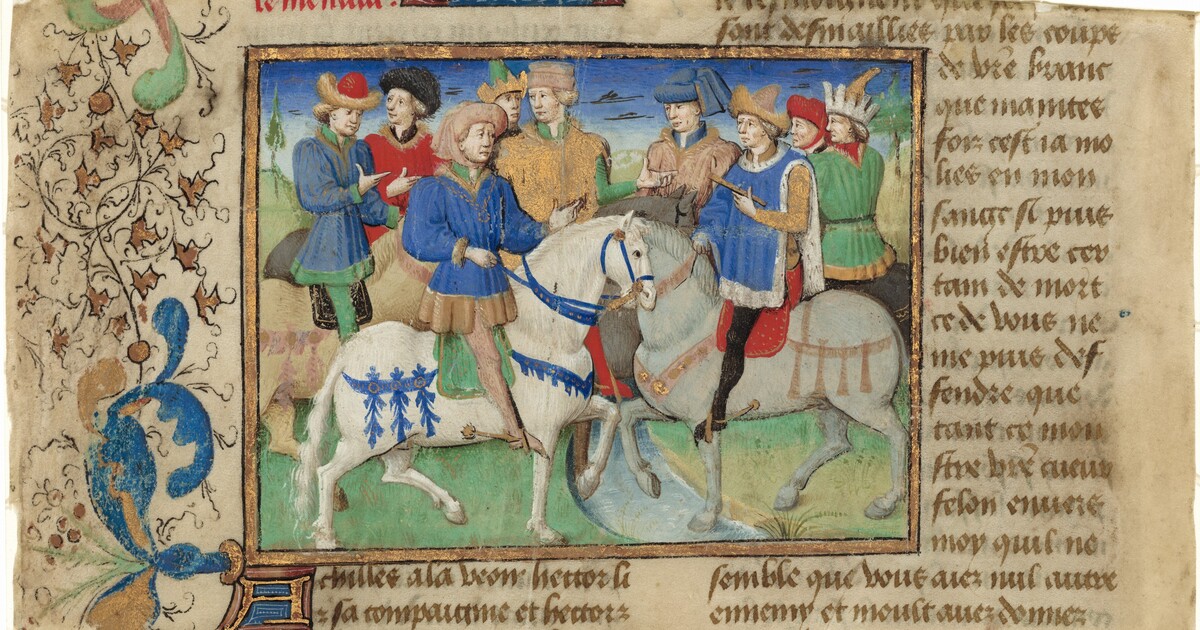 chilles ala veoir hector li
z sa compaignie et hector z
sont desmaillies par les coups
de vre branc
que maintes
foiz cest ia mo
lies en mon
sangc si puis
bien estre cer
tain de mort
ce de vous ne
me puis def
fendre que
tant ce mon
stre vre cueur
felon envers
moy quil ne
semble que vous aiez nul autre
ennemy et moult avez donner